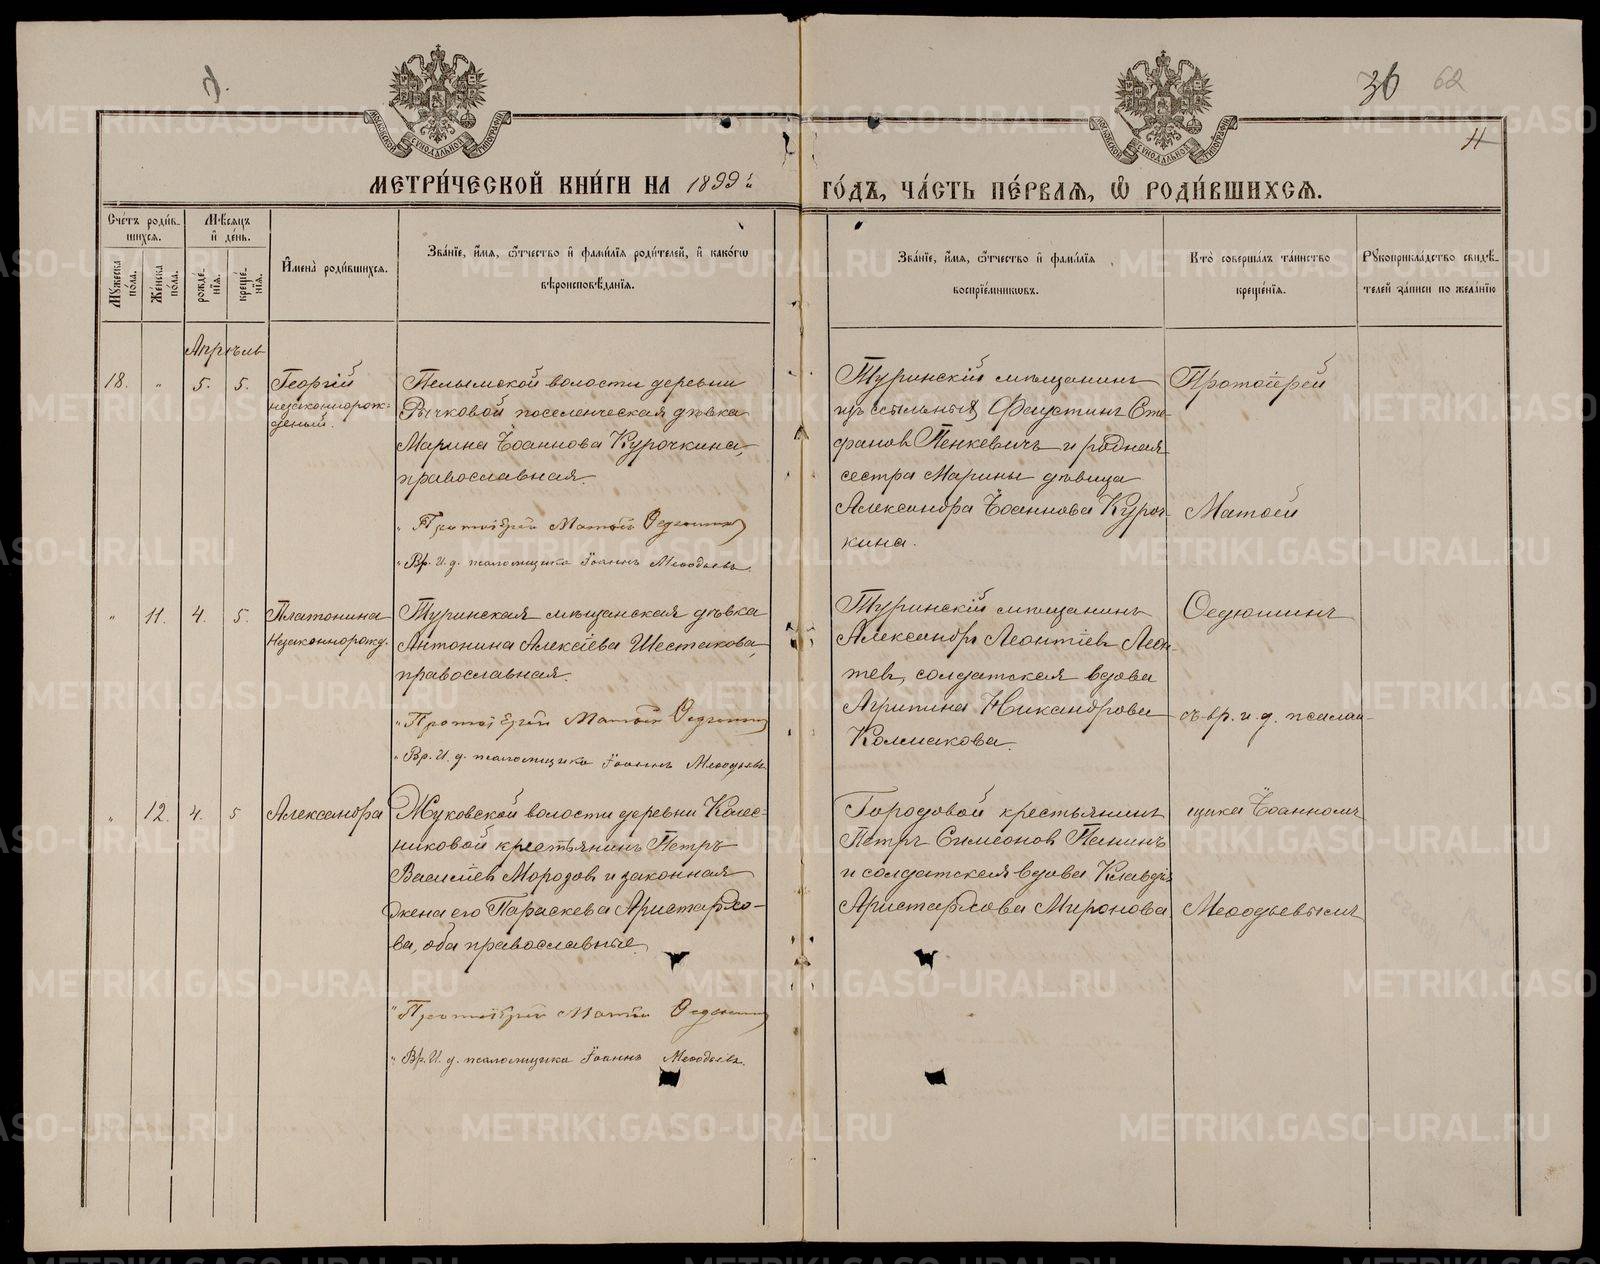 36 62
11
МОСКОВСКОЙ СѴНОДАЛЬНОЙ ТИПОГРАФІИ
МОСКОВСКОЙ СѴНОДАЛЬНОЙ ТИПОГРАФІИ
МЕТРИ́ЧЕСКОЙ КНИ́ГИ НА 1899й ГО́ДЪ, ЧА́СТЬ ПЕ́РВАѦ, Ѡ РОДИ́ВШИХСѦ.
Сче́тъ роди́в-
шихсѧ.
Мꙋ́жеска по́ла.
Же́нска по́ла.
Мѣ́сѧцъ
и҆ де́нь.
рожде́-
нїѧ.
креще́-
нїѧ.
И҆мена̀ роди́вшихсѧ.
Зва́нїе, и҆́мѧ, ѻ҆́тчество и҆ фами́лїѧ роди́телей, и҆ како́гѡ
вѣроисповѣ́данїѧ.
Зва́нїе, и҆́мѧ, ѻ҆́тчество и҆ фами́лїѧ
воспрїе́мникѡвъ.
Кто̀ соверша́лъ та́инство
креще́нїѧ.
Рꙋкоприкла́дство свидѣ́-
телей за́писи по жела́нїю
Апрѣль
18. " 5. 5. Георгій
незаконнорож-
деный.
Пелымской волости деревни
Рычковой поселенческая дѣвка
Марина Іоаннова Курочкина,
православная.
" Протоіерей Матѳей Ѳедюшинъ
" Вр. И. д. псаломщика Іоаннъ Меѳодьевъ.
Туринскій мѣщанинъ
изъ ссыльныхъ Фаустинъ Сте-
фановъ Пенкевичъ и родная
сестра Марины дѣвица
Александра Іоаннова Куроч-
кина.
" 11. 4. 5. Платонина
Незаконнорожд.
Туринская мѣщанская дѣвка
Антонина Алексіева Шестакова,
православная.
" Протоіерей Матѳей Ѳедюшинъ
" Вр. И. д. псаломщика Іоаннъ Меѳодьевъ
Туринскій мѣщанинъ
Александръ Леонтіевъ Леон-
тевъ, солдатская вдова
Агрипина Никандрова
Колмакова.
" 12. 4. 5 Александра
Жуковской волости деревни Колес-
никовой крестьянинъ Петръ
Василіевъ Морозовъ и законная
жена его Параскева Аристархо-
ва, оба православные.
" Протоіерей Матѳей Ѳедюшинъ
" Вр. И. д. псаломщика Іоаннъ Меѳодьевъ.
Городовой крестьянинъ
Петръ Симеоновъ Панинъ
и солдатская вдова Клавдія
Аристархова Миронова
Протоіерей
Матѳей
Ѳедюшинъ
съ вр. и. д. псалом-
щика Іоанномъ
Меѳодьевымъ
METRIKI.GASO-URAL.RU